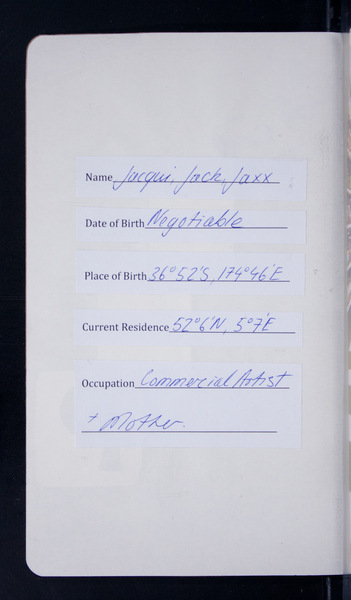 Name Jacqui, Jack, Jaxx
Date of Birth Negotiable
Place of Birth 36°52'S, 174°46'E
Current Residence 52°6'N, 5°7'E
Occupation Commercial Artist
+ Mother.